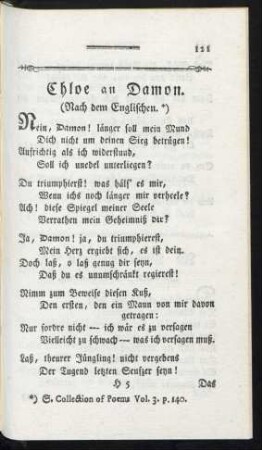 121
Chloe an Damon.
(Nach dem Englischen. *)
Nein, Damon! länger soll mein Mund
Dich nicht um deinen Sieg betrügen!
Aufrichtig als ich widerstund,
Soll ich unedel unterliegen?
Du triumphierst! was hälf' es mir,
Wenn ichs noch länger mir verheele?
Ach! diese Spiegel meiner Seele
Verrathen mein Geheimniß dir?
Ja, Damon! ja, du triumphierst,
Mein Herz ergiebt sich, es ist dein.
Doch laß, o laß genug dir seyn,
Daß du es unumschränkt regierest!
Nimm zum Beweise diesen Kuß,
Den ersten, den ein Mann von mir davon
getragen:
Nur fordre nicht — ich wär es zu versagen
Vielleicht zu schwach — was ich versagen muß.
Laß, theurer Jüngling! nicht vergebens
Der Tugend letzten Seufzer seyn!
H 5 Das
*) S. Collection of Poems Vol. 3. p. 140.